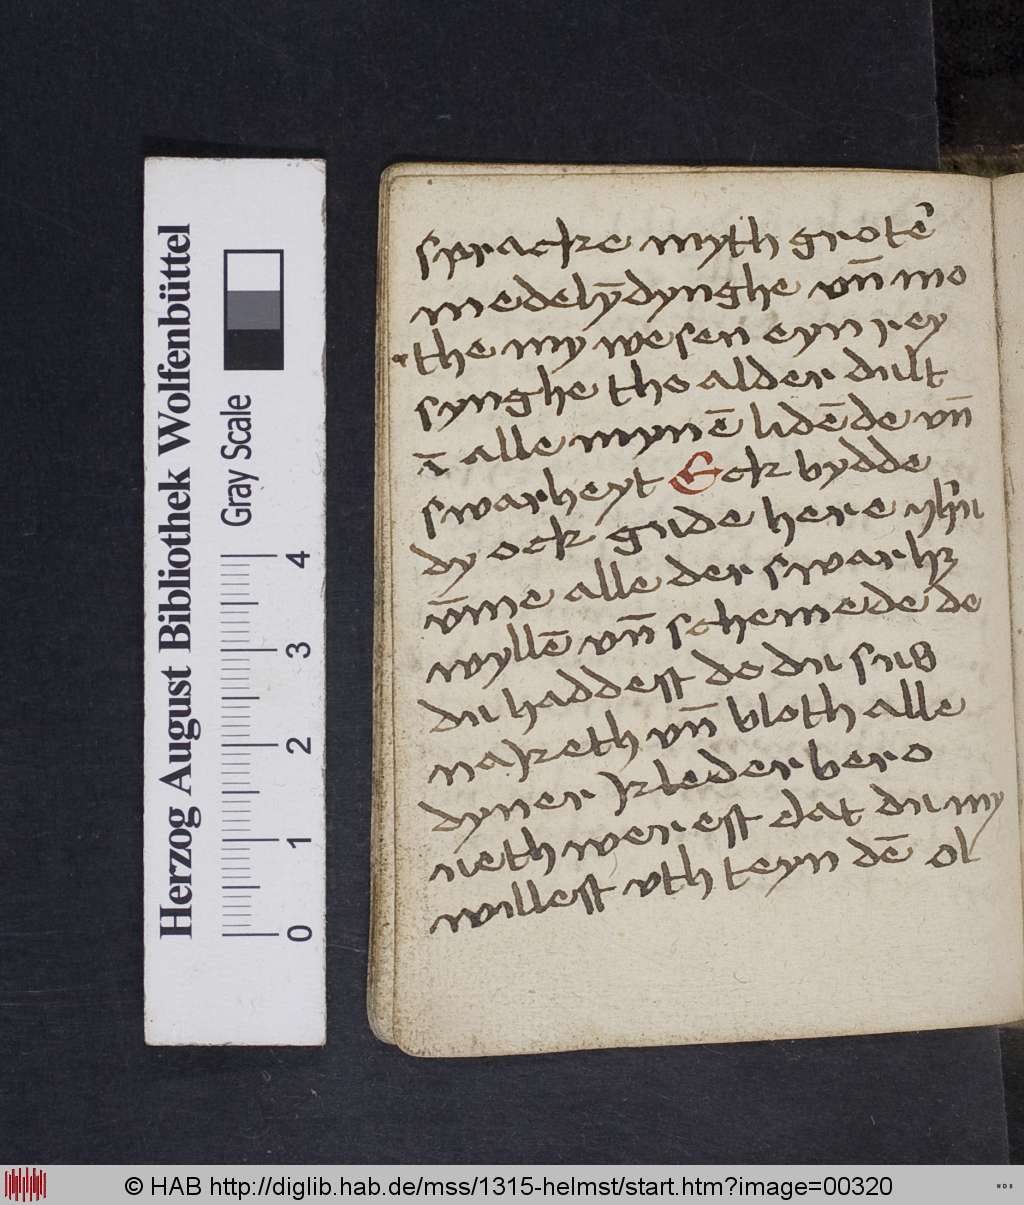 Herzog August Bibliothek Wolfenbüttel
Gray Scale
0 1 2 3 4
spracke myth grote᷑
medelȳdynghe vn̄ mo
the my wesen eyn rey
synghe tho alder dult
ī alle mynē lidēde vn̄
swarheyt Eck bydde
dy ock gude here
v̄me alle der swarh
wyllē vn̄ schemede de
du haddest do du sus
naketh vn̄ bloth alle
dyner kleder bero
ueth werest dat du my
willest vth teyn dē ol
© HAB http://diglib.hab.de/mss/1315-helmst/start.htm?image=00320